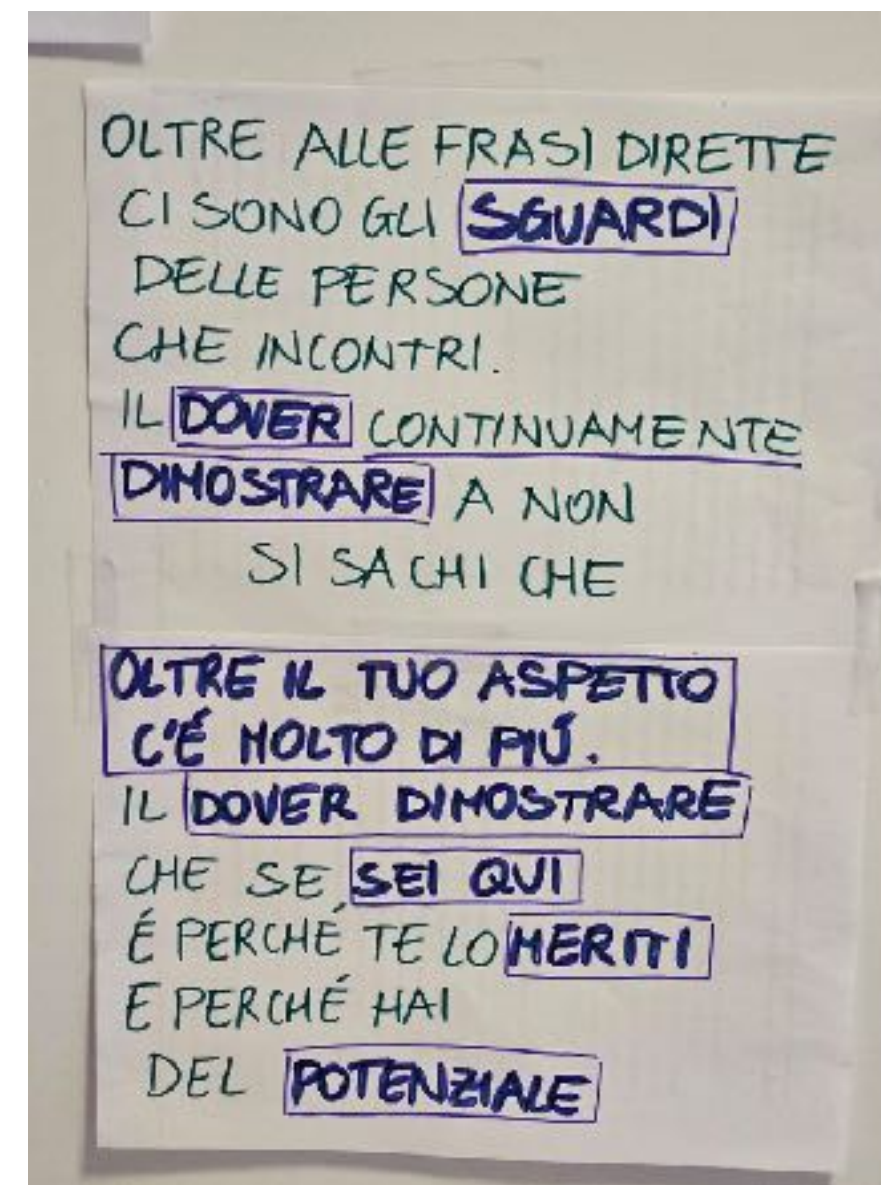 OLTRE ALLE FRASI DIRETTE
CI SONO GLI SGUARDI
DELLE PERSONE
CHE INCONTRI.
IL DOVER CONTINUAMENTE
DIMOSTRARE A NON
SI SA CHI CHE
OLTRE IL TUO ASPETTO
C'É MOLTO DI PIÚ.
IL DOVER DIMOSTRARE
CHE SE SEI QUI
É PERCHÉ TE LO MERITI
E PERCHÉ HAI
DEL POTENZIALE